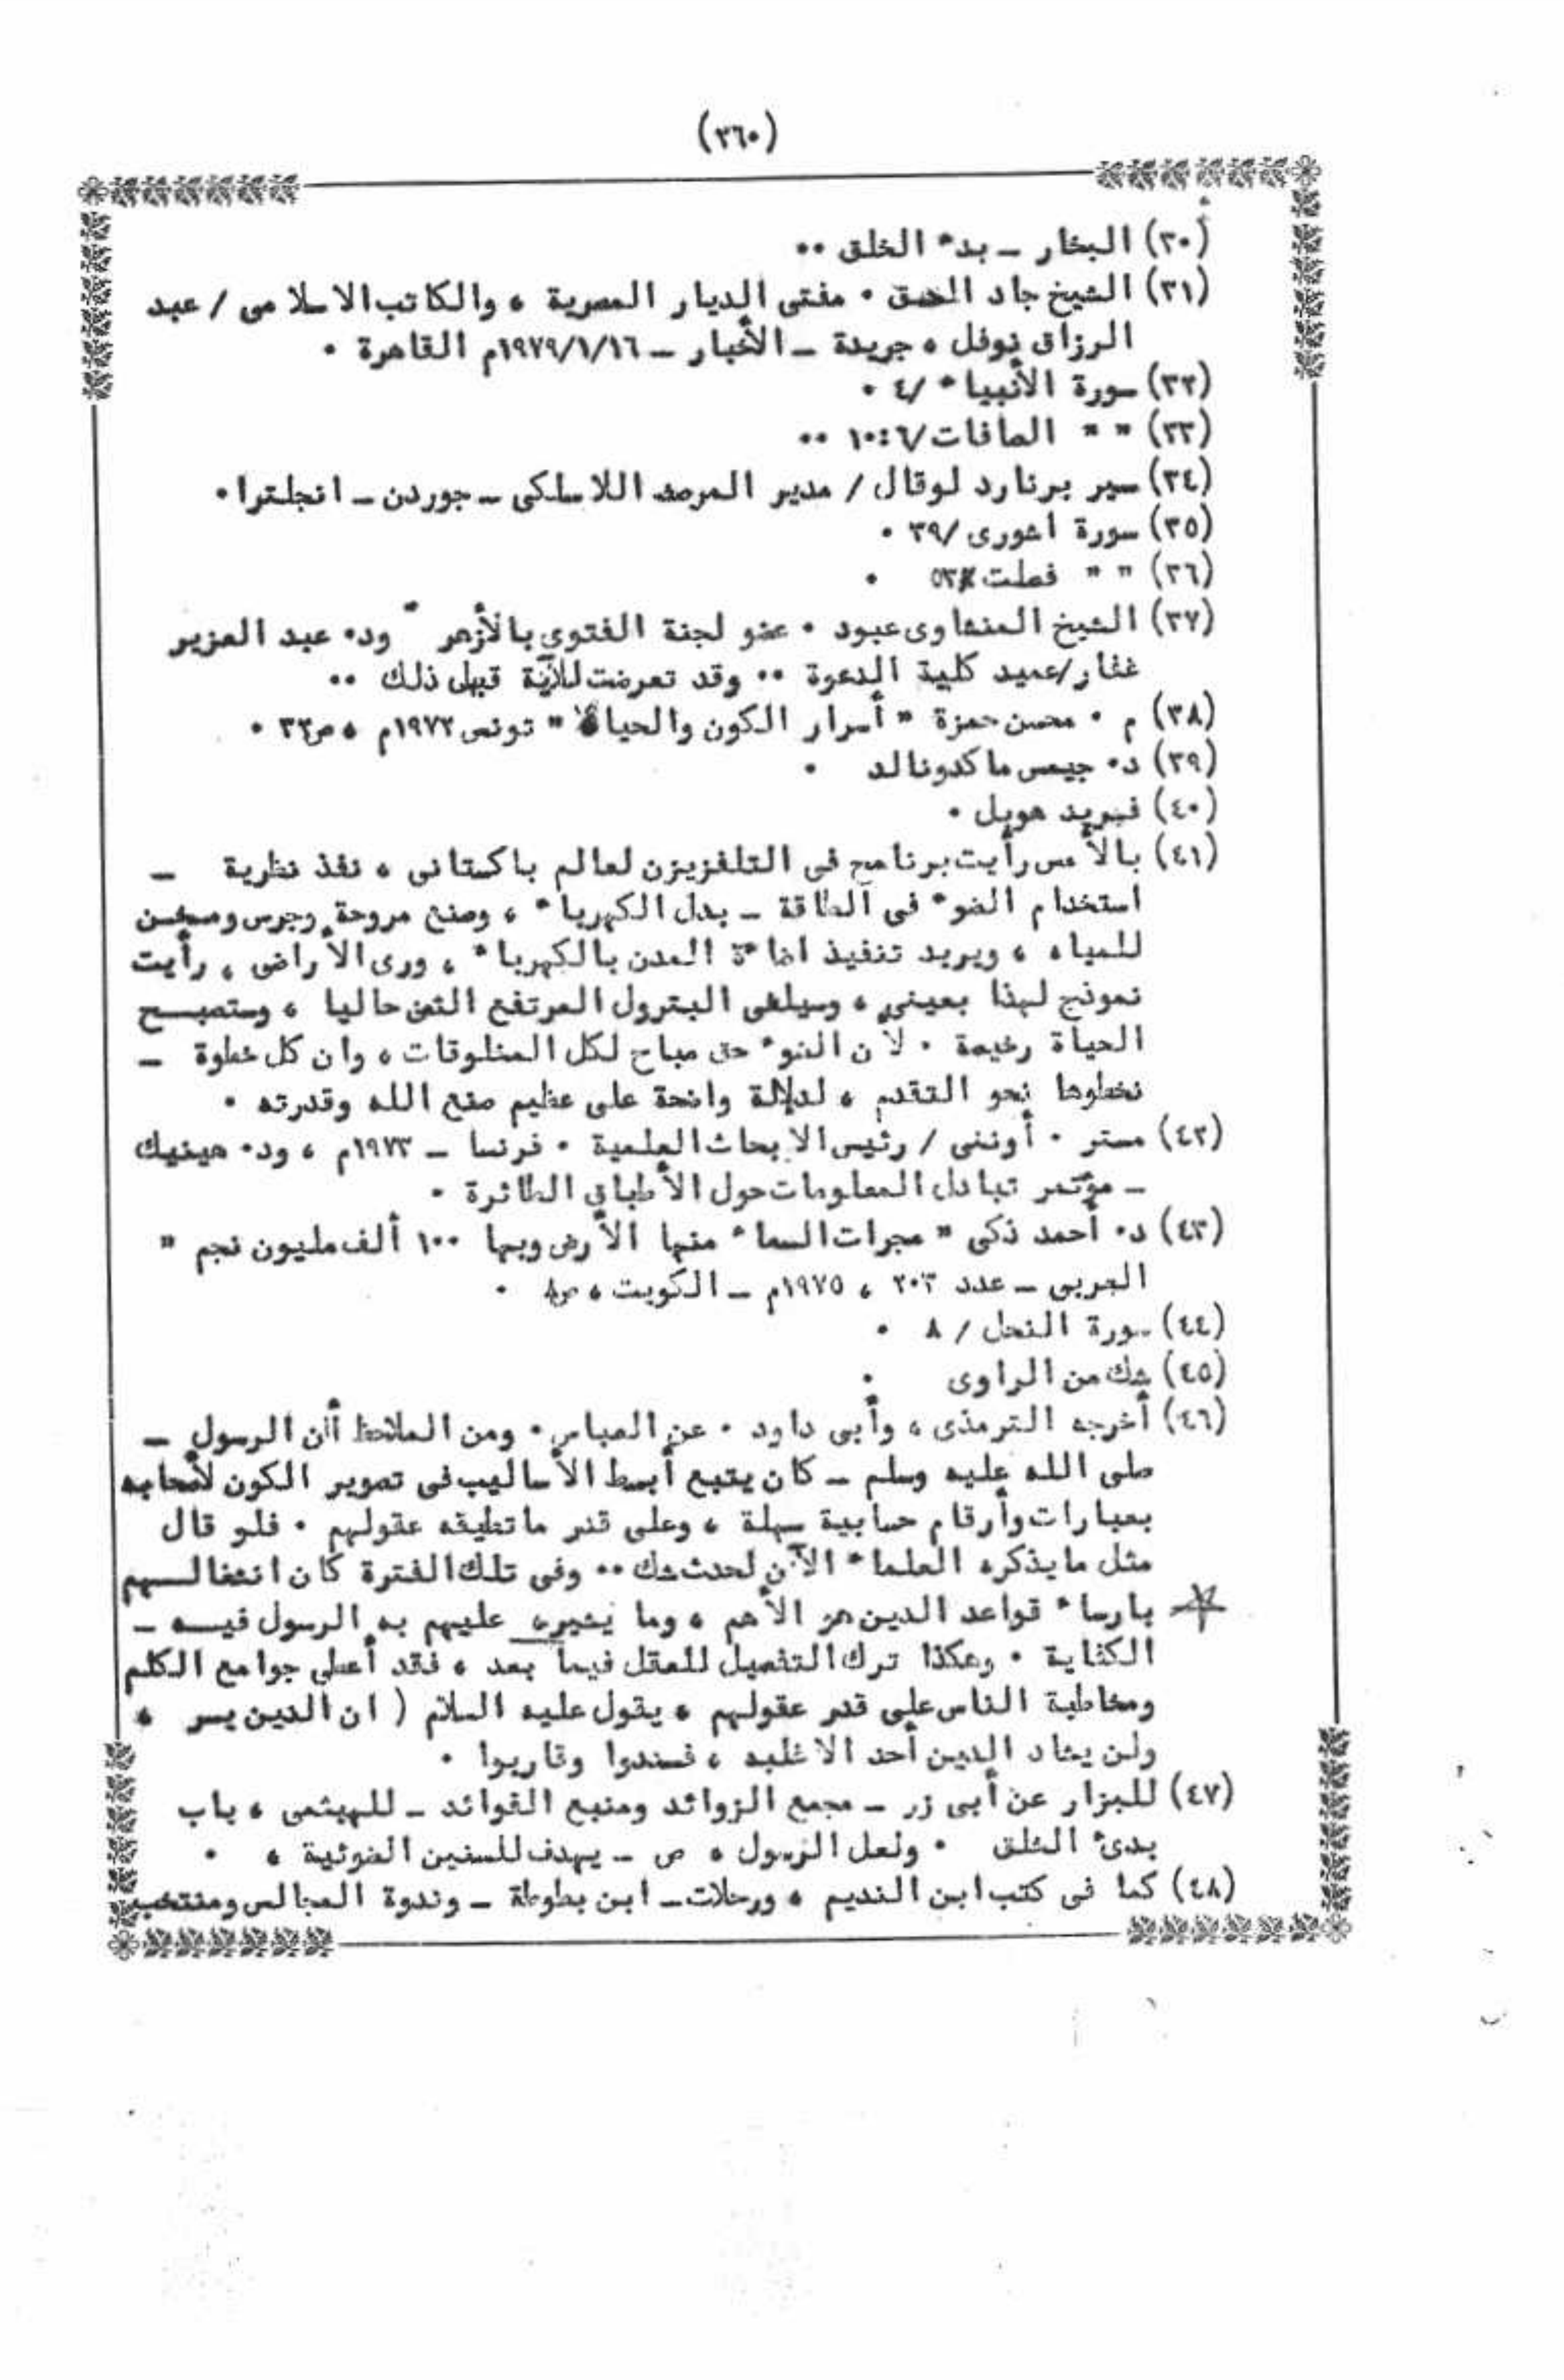 (٣٦٠)
(٣٠) البخار ــ بدء الخلق ٠٠
(٣١) الشيخ جاد الحق ٠ مفتى الديار المصرية ، والكاتب الاسلامى / عبد
الرزاق نوفل ، جريدة ــ الأخبار ــ ١٩٧٩/١/١٦م القاهرة ٠
(٣٢) سورة الأنبياء /٤ ٠
(٣٣) " " الصافات/٦:١٠ ٠٠
(٣٤) سير برنارد لوفال / مدير المرصد اللاسلكى ــ جوردن ــ انجلترا ٠
(٣٥) سورة اشورى /٣٩ ٠
(٣٦) " " فصلت /٥٣ ٠
(٣٧) الشيخ المنشاوى عبود ٠ عضو لجنة الفتوى بالأزهر ود٠ عبد العزيز
غفار/عميد كلية الدعوة ٠٠ وقد تعرضت للآية قبل ذلك ٠٠
(٣٨) م ٠ محسن حمزة " أسرار الكون والحياة " تونس ١٩٧٢م ، ص٣٢ ٠
(٣٩) د٠ جيمس ماكدونالد ٠
(٤٠) فريد هويل ٠
(٤١) بالأمس رأيت برنامج فى التلفزيزن لعالم باكستانى ، نفذ نظرية ــ
استخدام الضوء فى الطاقة ــ بدل الكهرباء ، وصنع مروحة وجرس ومسخن
للمياه ، ويريد تنفيذ اضاءة المدن بالكهرباء ، ورى الأراضى ، رأيت
نموذج لهذا بعينى ، وسيلغى البترول المرتفع الثمن حاليا ، وستصبح
الحياة رخيصة ٠ لأن الضوء حق مباح لكل المخلوقات ، وان كل خطوة ــ
نخطوها نحو التقدم ، لدلالة واضحة على عظيم صنع الله وقدرته ٠
(٤٢) مستر ٠ أوننى / رئيس الابحاث العلمية ٠ فرنسا ــ ١٩٧٣م ، ود٠ هينيك
ــ مؤتمر تبادل المعلومات حول الأطباق الطائرة ٠
(٤٣) د٠ أحمد ذكى " مجرات السماء منها الأرض وبها ١٠٠ ألف مليون نجم "
العربى ــ عدد ٢٠٣ ، ١٩٧٥م ــ الكويت ، ص٨ ٠
(٤٤) سورة النحل / ٨ ٠
(٤٥) شك من الراوى ٠
(٤٦) أخرجه الترمذى ، وأبى داود ٠ عن العباس ٠ ومن الملاحظ أن الرسول ــ
صلى الله عليه وسلم ــ كان يتبع أبسط الأساليب فى تصوير الكون لأصحابه
بعبارات وأرقام حسابية سهلة ، وعلى قدر ماتطيقه عقولهم ٠ فلو قال
مثل مايذكره العلماء الآن لحدث شك ٠٠ وفى تلك الفترة كان انشغالهم
بارساء قواعد الدين هو الأهم ، وما يشير عليهم به الرسول فيه ــ
الكفاية ٠ وهكذا ترك التفصيل للعقل فيما بعد ، فقد أعطى جوامع الكلم
ومخاطبة الناس على قدر عقولهم ، يقول عليه السلام ( ان الدين يسر ،
ولن يشاد الدين أحد الا غلبه ، فسددوا وقاربوا ٠
(٤٧) للبزار عن أبى زر ــ مجمع الزوائد ومنبع الفوائد ــ للهيثمى ، باب
بدئ الخلق ٠ ولعل الرسول ، ص ــ يهدف للسنين الضوئية ، ٠
(٤٨) كما فى كتب ابن النديم ، ورحلات ــ ابن بطوطة ــ وندوة المجالس ومنتخب